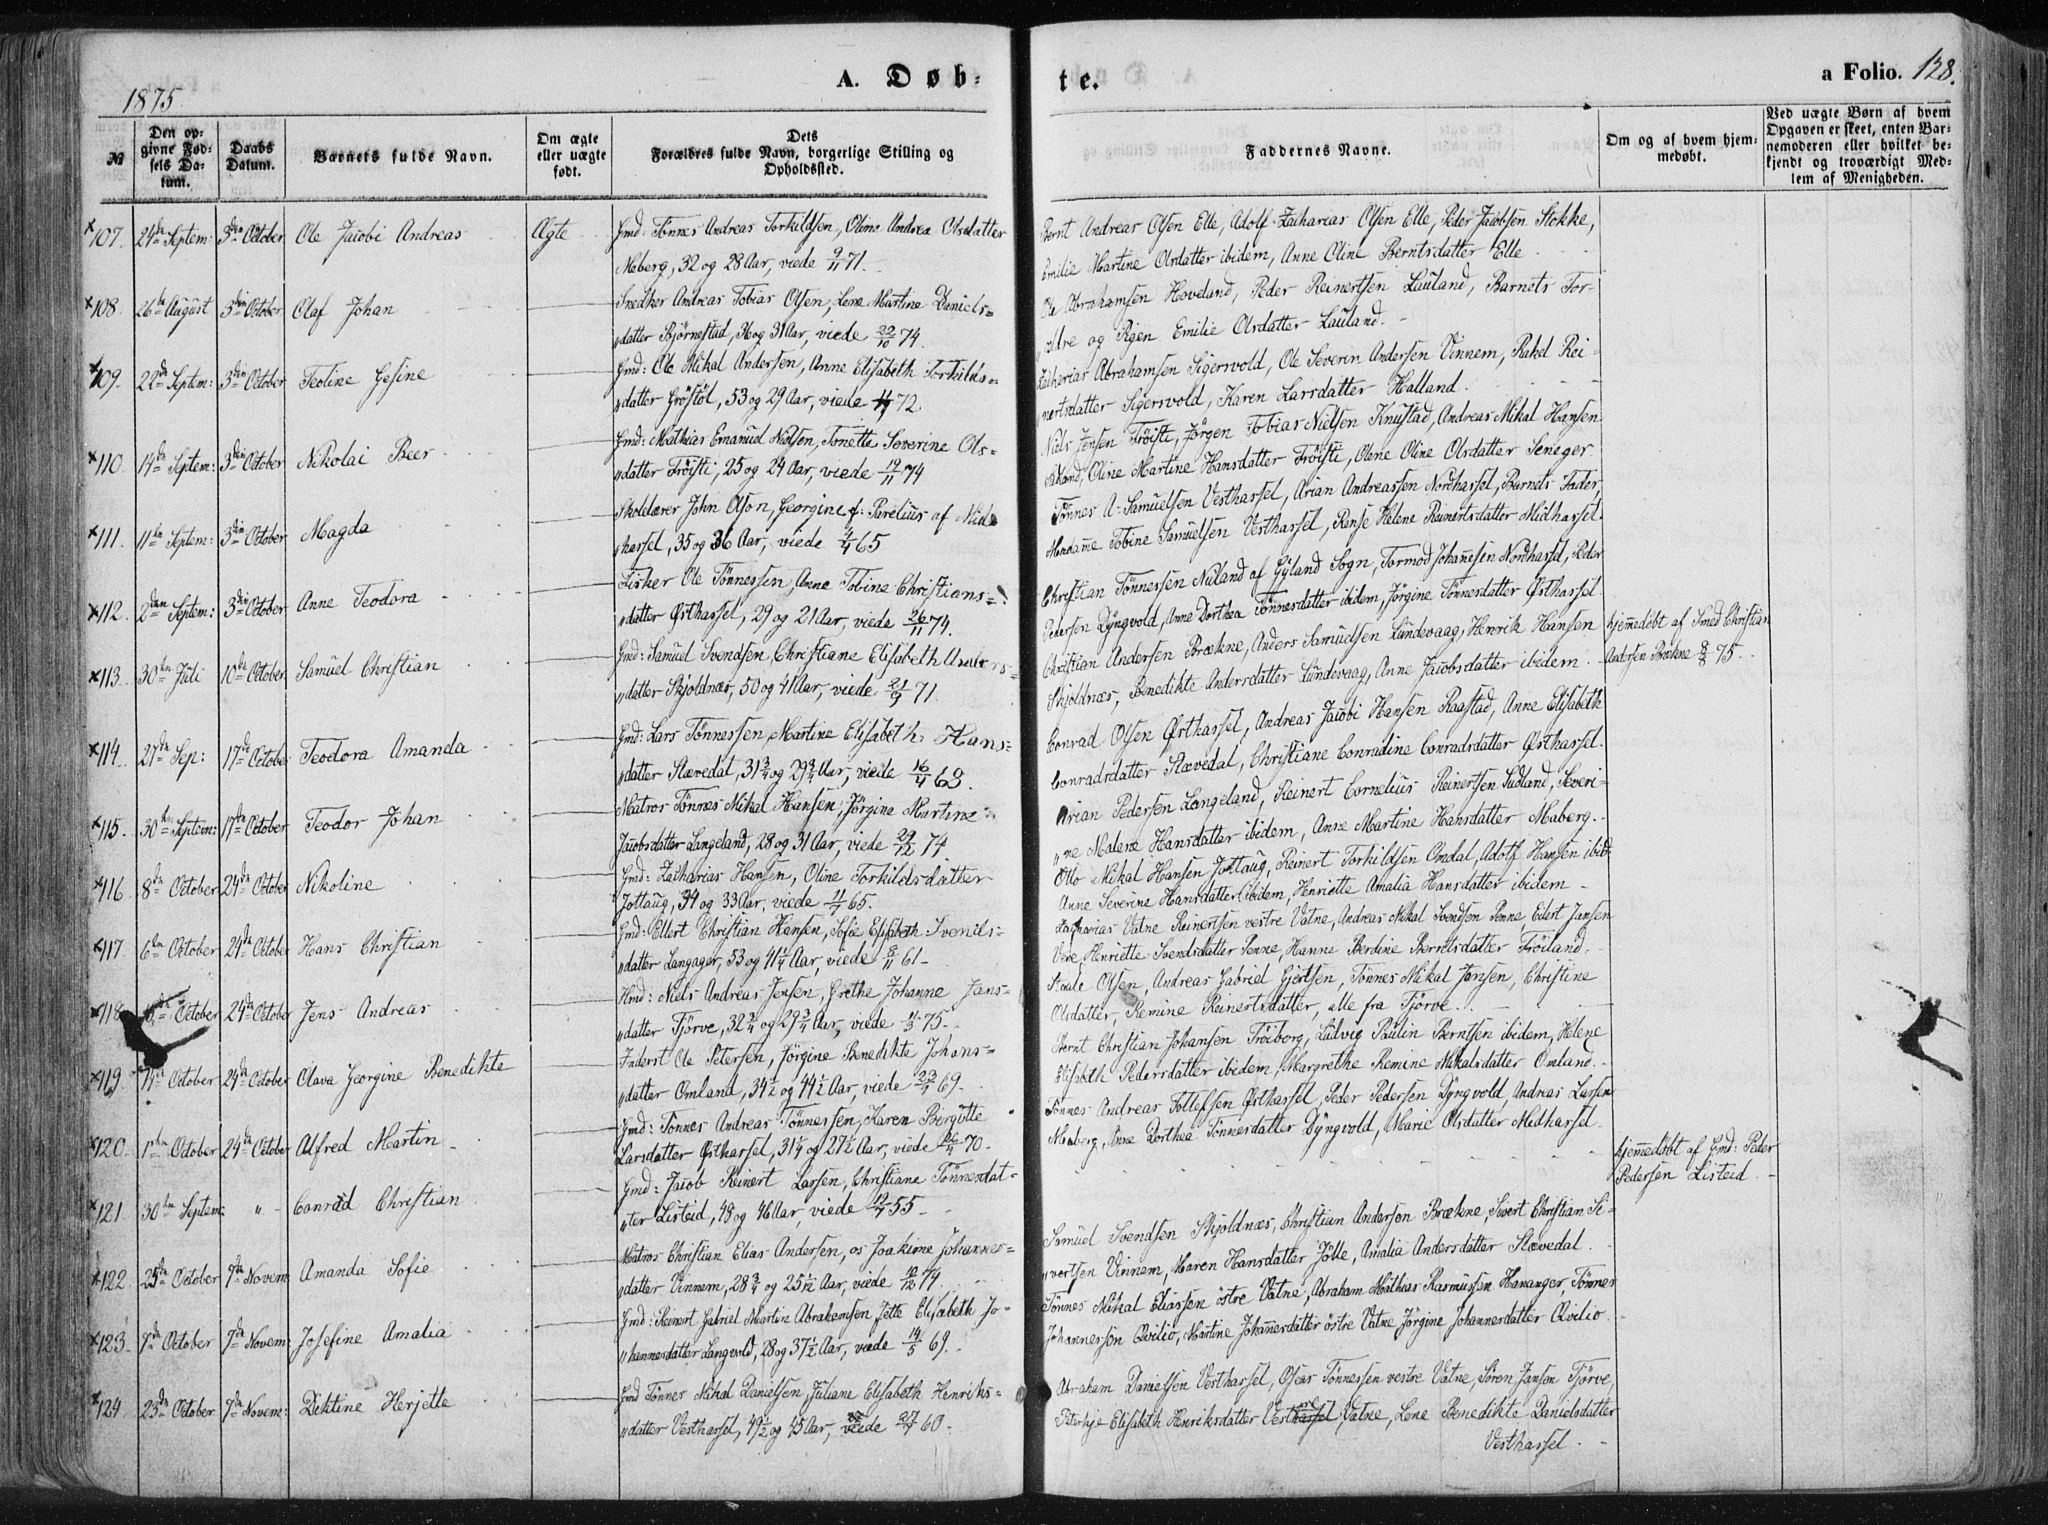 1875
A. Døb-
№
Den op-
givne Fød-
sels Da-
tum.
Daabs
Datum.
Barnets fulde Navn.
Om ægte
eller uægte
født.
Dets
Forældres fulde Navn, borgerlige Stilling og
Opholdssted.
107. 24de Septem: 3die October Ole Jacobi Andreas Ægte Gmd: Tönnes Andreas Torkildsen, Oline Andrea Olsdatter
Maberg, 32 og 28 Aar, viede 9/11 71.
108. 26de August 3die October Olaf Johan Snedker Andreas Tobias Olsen, Lene Martine Daniels=
datter Bjørnestad, 36 og 31 Aar, viede 22/10 74.
109. 22de Septem: 3die October Teoline Gesine Gmd: Ole Mikal Andersen, Anne Elisabeth Torkilds=
datter Gröstöl, 53 og 29 Aar, viede 72.
110. 14de Septem: 3die October Nikolai Beer Gmd: Mathias Emanuel Nielsen, Tonette Severine Ols=
datter Fröisti, 25 og 24 Aar, viede 74
111. 11te Septem: 3die October Magda Skolelærer John Olson, Georgine f. Parelius af Mid=
hassel, 35 og 36 Aar, viede 65
112. 2den Septem: 3die October Anne Teodora Fisker Ole Tönnessen, Anne Tobine Christians=
datter Østhassel, 29 og 21 Aar, viede 26/11 74.
113. 30te Juli 10de October Samuel Christian Gmd: Samuel Svendsen, Christiane Elisabeth Anders=
datter Skjoldnæs, 50 og 41 Aar, viede 21/9 71.
114. 27de Sep: 17de October Teodora Amanda Gmd: Lars Tönnessen, Martine Elisabeth Hans=
datter Stævedal, 31 3/4 og 29 3/4 Aar, viede 16/4 63.
115. 30te Septem: 17de October Teodor Johan Matros Tönnes Mikal Hansen, Jörgine Martine
Jacobsdatter Langeland, 28 og 31 Aar, viede 29/12 74
116. 8de October 24de October Nikoline Gmd: Zacharias Hansen, Oline Torkildsdatter
Jottaug, 34 og 33 Aar, viede 65.
117. 6te October 24de October Hans Christian Gmd: Ellert Christian Hansen, Sofie Elisabeth Svends=
datter Langager, 53 og 41 1/4 Aar, viede 8/11 61.
118. October 24de October Jens Andreas Hmd: Niels Andreas Jensen, Grethe Johanne Jans=
datter Tjörve, 32 3/4 og 29 3/4 Aar, viede 75.
119. October 24de October Olava Georgine Benedikte Inderst Ole Petersen, Jörgine Benedikte Johans=
datter Omland, 34 1/2 og 44 1/2 Aar, viede 69.
120. 1ste October 24de October Alfred Martin Gmd: Tönnes Andreas Tönnessen, Karen Bergitte
Larsdatter Østhassel, 31 1/4 og 27 1/2 Aar, viede 70.
121 30te Septem: " Conrad Christian Gmd: Jacob Reinert Larsen, Christiane Tönnesdat=
ter Listeid, 48 og 46 Aar, viede 55
122. 25de October 7de Novem: Amanda Sofie Matros Christian Elias Andersen, os Joakime Johannes=
datter Vinnem, 28 3/4 og 25 Aar, viede 74.
123. 7de October 7de Novem: Josefine Amalia Gmd: Reinert Gabriel Martin Abrahamsen, Jette Elisabeth Jo=
hannesdatter Langvold, 28 og 37 1/2 Aar, viede 14/5 69.
124. 23de October 7de Novem: Diktine Herjette Gmd Tönnes Mikal Danielsen, Juliane Elisabeth Henriks=
datter Vesthassel, 49 1/2 og 45 Aar, viede 60.
te.
a Folio. 128.
Faddernes Navne.
Om og af hvem hjem-
medøbt.
Ved uægte Børn af hvem
Opgaven er skeet, enten Bar-
nemoderen eller hvilket be-
kjendt og troværdigt Med-
lem af Menigheden.
Bernt Andreas Olsen Elle, Adolf Zacharias Olsen Elle, Peder Jacobsen Stokke,
Emilie Martine Olsdatter ibidem, Anne Oline Berntsdatter Elle
Ole Abrahamsen Hoveland, Peder Reinertsen Lauland, Barnets For=
ældre og Pigen Emilie Olsdatter Lauland.
Zacharias Abrahamsen Sigersvold, Ole Severin Andersen Vinnem, Rakel Rei=
nertsdatter Sigersvold, Karen Larsdatter Halland
Niels Jensen Fröisti, Jörgen Tobias Nielsen Knustad, Andreas Mikal Hansen
Oline Martine Hansdatter Fröisti, Olene Oline Olsdatter Seneger
Tönnes A. Samuelsen Vesthassel, Arian Andreassen Nordhassel, Barnets Fader,
Madame Tobine Samuelsen Vesthassel, Rense Helene Reinertsdatter Midhassel.
Christian Tönnessen Nuland af Gyland Sogn, Tormod Johannesen Nordhassel, Peder
Pedersen Dyngvold, Anne Dorthea Tönnesdatter ibidem, Jörgine Tönnesdatter Østhassel.
Christian Andersen Brækne, Anders Samuelsen Lundevaag, Henrik Hansen
Skjoldnæs, Benedikte Andersdatter Lundevaag, Anne Jacobsdatter ibidem.
hjemmedøbt af Smed Christian
Andersen Brækne 8/8 75.
Conrad Olsen Østhassel, Andreas Jacobi Hansen Raastad, Anne Elisabeth
Conradsdatter Stævedal, Christiane Conradine Conradsdatter Østhassel.
Arian Pedersen Langeland, Reinert Cornelius Reinertsen Sudland, Severi=
ne Malene Hansdatter ibidem, Anne Martine Hansdatter Maberg.
Otto Mikal Hansen Jottaug, Reinert Torkildsen Omdal, Adolf Hansen ibid.
Anne Severine Hansdatter ibidem, Henriette Amalia Hansdatter ibidem
Zacharias Vatne Reinertsen vestre Vatne, Andreas Mikal Svendsen Penne, Edert Jansen
Vere, Henriette Svendsdatter Penne, Hanne Berdine Berntsdatter Fröiland.
Olsen, Andreas Gabriel Gjertsen, Tönnes Mikal Jansen, Christine
Olsdatter, Remine Reinertsdatter, alle fra Tjörve
Bernt Christian Johansen Fröiborg, Ludvig Paulin Berntsen ibidem, Helene
Elisabeth Pedersdatter ibidem, Margrethe Remine Mikalsdatter Omland.
Tönnes Andreas Tollefsen Østhassel, Peder Pedersen Dyngvold, Andreas Larsen
Maaberg, Anne Dorthea Tönnesdatter Dyngvold, Marie Olsdatter Midhassel.
hjemmedøbt af Gmd: Peder
Pedersen Listeid
Samuel Svendsen Skjoldnæs, Christian Andersen Brækne, Sivert Christian Si=
vertsen Vinnem, Maren Hansdatter Jölle, Amalia Andersdatter Stævedal.
Tönnes Mikal Eliassen östre Vatne, Abraham Mathias Rasmussen Hananger, Tönnes
Johannessen Qvilio, Martine Johannesdatter östre Vatne Jörgine Johannesdatter Qvilio.
Abraham Danielsen Vesthassel, Oseas Tönnessen vestre Vatne, Sören Jansen Tjörve,
Elisabeth Henriksdatter Vesthassel, Vatne, Lene Benedikte Danielsdatter
Vesthassel.